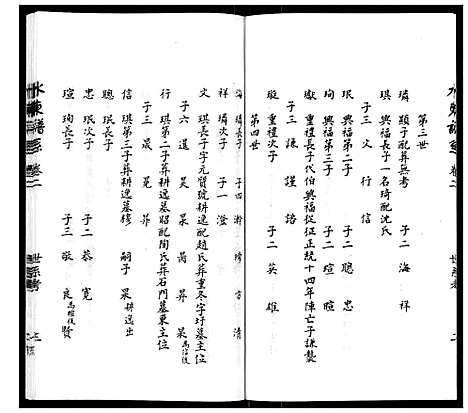 第三世
璘 顯子配葬無考 子二 海 祥
琪 興福長子一名琦配沈氏
子三 文 行 信
珉 興福第二子 子二 聰 忠
珣 興福第三子 子二 瑄
獻 重禮長子代伯興福從征正統十四年陣亡子謙襲
子三 謙 謹 諮
璇 重禮次子 子二 英 雄
第四世
海 璘長子 子四 瀚 清
祥 璘次子 子一 澄
文 琪長子字元質號耕逸配趙氏葬重冬字圩墓主位
子六 暹 昊 昺 昇 杲
行 琪第二子葬耕逸墓昭配陶氏葬石門墓東主位
子三 晟 冕 昴
信 琪第三子葬耕逸墓穆 嗣子 杲 耕逸出
聰 珉長子
忠 珉次子 子二 恭 寬
瑄 珣長子 子三 敬 良 賢
水東譜系 卷二 世系考